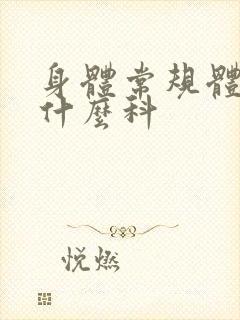 身體常規體
什麼科
悦燃